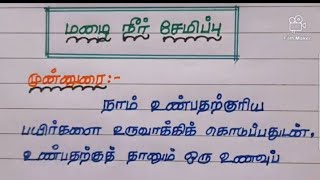 மழை நீர் சேமிப்பு
முன்னுரை:-
நாம் உண்பதற்குரிய
பயிர்களை உருவாக்கிக் கொடுப்பதுடன்,
உண்பதற்குத் தானும் ஒரு உணவுப்